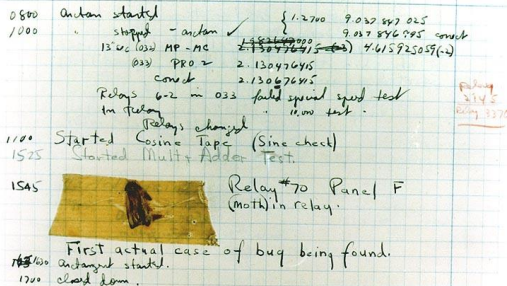 0800 arctan started { 1.2700 9.037 847 025
1000 " stopped - arctan ✓ 9.037 846 995 conect
13"uc (032) MP - MC 2.130476415 4.615925059(-2)
(033) PRO 2 2.130476415
conect 2.130676415
Relays 6-2 in 033 failed special speed test
in Relay " 11.000 test.
Relay
2145
Relay 3370
Relays changed
1100 Started Cosine Tape (Sine check)
1525 Started Mult+ Adder Test.
1545 Relay #70 Panel F
(moth) in relay.
First actual case of bug being found.
1630 arctangent started.
1700 closed down.